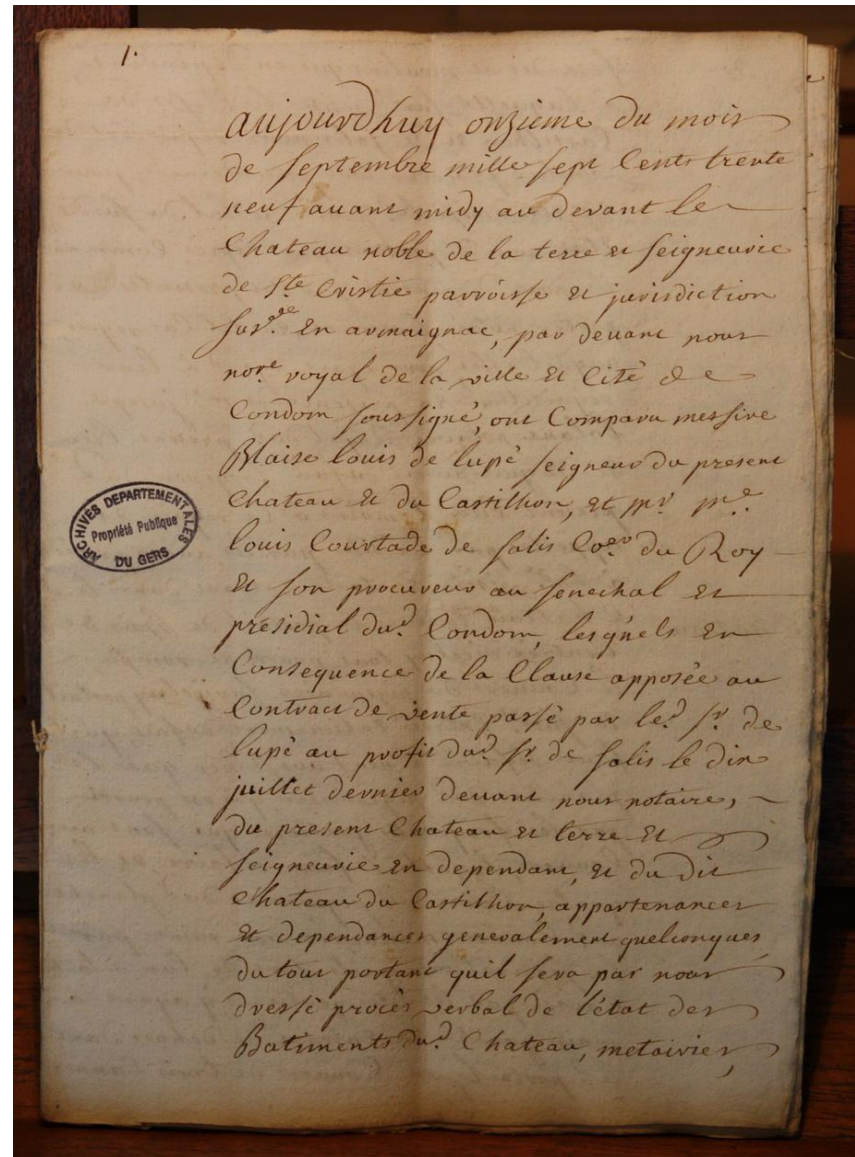 1.
aujourdhuy onzieme du mois
de septembre mille sept Cents trente
neuf avant midy au devant le
Chateau noble de la terre et seigneurie
de Ste Cristie parroisse et jurisdiction
susd. En armaignac, par devant nous
nore royal de la ville et Cité de
Condom soussigné, ont Comparu messire
Blaise louis de lupé seigneur du present
Chateau et du Castilhon, et mr me
louis Courtade de salis Coer du Roy
et son procureur au senechal et
presidial dud. Condom, lesquels En
Consequence de la Clause apposée au
Contract de vente passé par led. sr. de
lupé au profit dud. sr. de salis le dix
juillet dernier devant nous notaire,
du present Chateau et terre et
seigneurie en dependant, et du dit
Chateau du Castilhon, appartenances
et dependances generalement quelconques,
du tout portant quil sera par nous
dressé procès verbal de l'état des
Batiments dud. Chateau, metairies,
ARCHIVES DEPARTEMENTALES
Propriété Publique
DU GERS